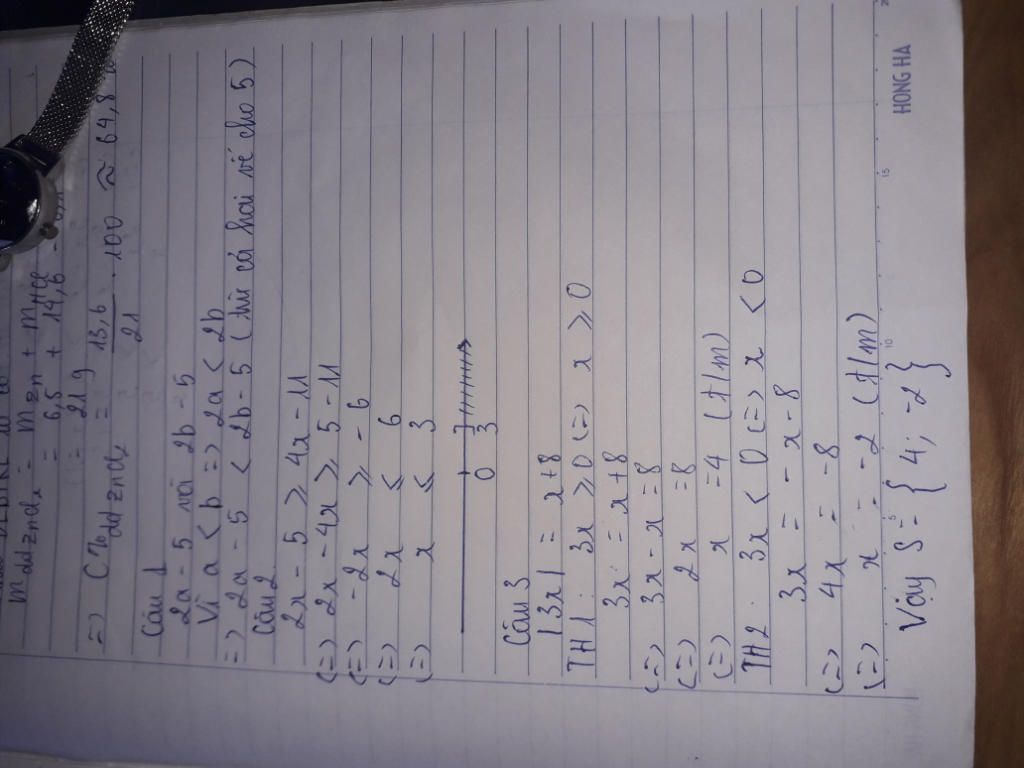 m dd znd₂ = m zn + m HCl
= 6,5 + 14,6 -
= 21 9
=) C% dd znd₂ = 13,6 / 21 . 100 ≈ 64,8
Câu 1
2a - 5 với 2b - 5
Vì a < b => 2a < 2b
=) 2a - 5 < 2b - 5 (trừ cả hai vế cho 5)
Câu 2
2x - 5 ≥ 4x - 11
(=) 2x - 4x ≥ 5 - 11
(=) -2x ≥ -6
(=) 2x ≤ 6
(=) x ≤ 3
0 3
Câu 3
|3x| = x + 8
TH1: 3x ≥ 0 (=) x ≥ 0
3x = x + 8
(=) 3x - x = 8
(=) 2x = 8
(=) x = 4 (t/m)
TH2. 3x < 0 (=) x < 0
3x = - x - 8
(=) 4x = -8
(=) x = -2 (t/m)
Vậy S = { 4; -2 }
HONG HA
5 10 15 20